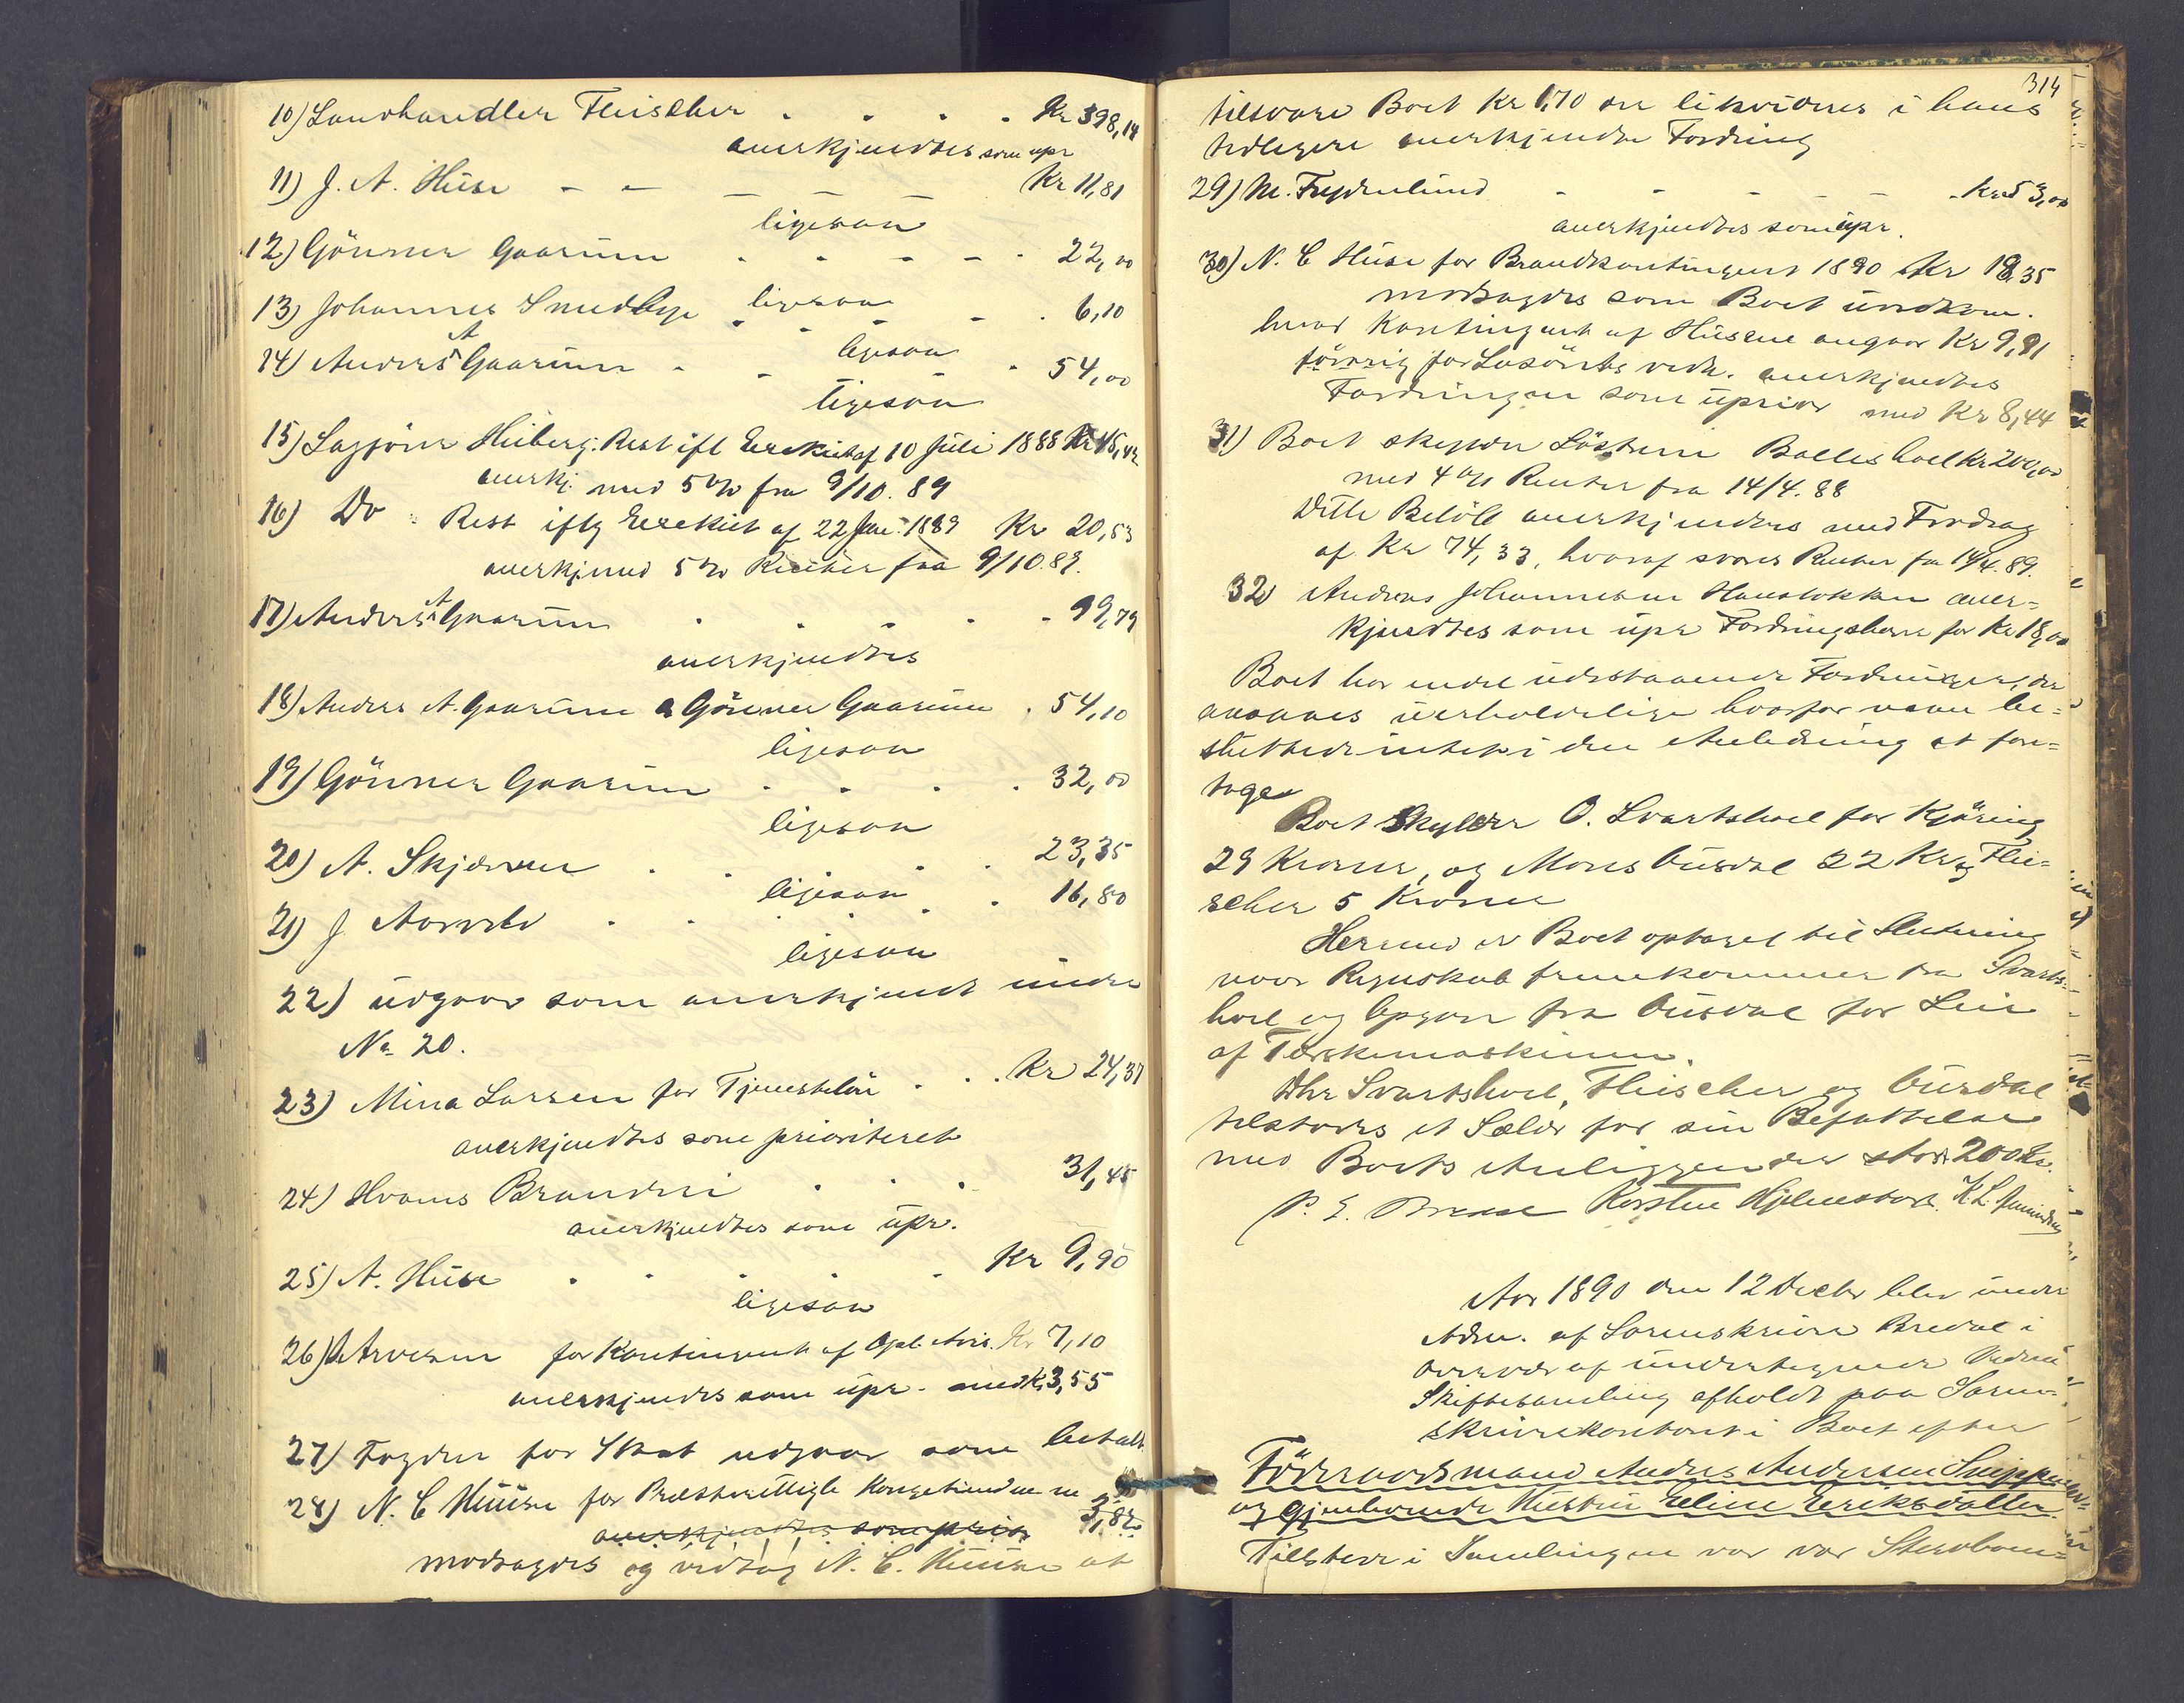 10) Landhandler Fleischer . . . . Kr 398,14
anerkjendtes som upr
11) J. A. Huse - - - - Kr 11,81
ligesaa
12) Gönner Gaarum . . . . . 22,00
ligesaa
13) Johannes Smedbye . . . . 6,10
ligesaa
14) Anders A Gaarum . . . . 54,00
ligesaa
15) Sagförer Hiberg: Rest ifl Exekut af 10 Juli 1888 Kr 45,42
anerkj. med 5 % fra 9/10. 89
16) Do : Rest iflg Exekut af 22 Jan. 1889 Kr 20,53
anerkj med 5 % Renter fra 9/10.89.
17) Anders A Gaarum . . . . . 99,79
anerkjendtes
18) Anders A. Gaarum & Gönner Gaarum . 54,10
ligesaa
19) Gönner Gaarum . . . . 32,00
ligesaa
20) A. Skjerven . . . . . 23,35
ligesaa
21) J. . . . . . 16,80
ligesaa
22) udgaar som anerkjendt under
No 20.
23) Mina Larsen for Tjenestelön . . . Kr 24,37
anerkjendtes som prioriteret
24) Hvams Brænderi . . . 31,45
anerkjendtes som upr.
25) A. Huse . . . . . Kr 9,90
ligesaa
26) Arvesen for Kontingent af Opl. Avis. Kr 7,10
anerkjendes som upr. med Kr 3,55
27) Fogden for Skat udgaar som betalt
28) N. C Huuse for Kongetiende 3,82
anerkjendtes som prior
modsagdes og vedtog N. C. Huuse at
314
tilsvare Boet Kr 1,70 der likvideres i hans
tidligere anerkjendte Fordring
29) M. Frydenlund - - - - - Kr 53,00
anerkjendtes som upr.
30) N. C Huse for Brandkontingent 1890 Kr 18,35
modsagdes som Boet uvedkom.
hvad Kontingent af Husene angaar Kr 9,91
forövrig for Lösöret vedk. anerkjendtes
Fordringen som uprior med Kr 8,44
31) Boet skylder Balleshoel Kr 200,00
med 4 % Renter fra 14/4. 88
Dette Belöb anerkjendes med Fradrag
af Kr 74,33, hvoraf svares Renter fra 14/4. 89.
32) Andreas Johannesen Hanslökken aner=
kjendtes som upr Fordringshaver for Kr 18,00
Boet har endel udestaaende Fordringer, der
ansaaes uerholdelige hvorfor man be=
sluttede intet i den Anledning at fore=
tage
Boet skylder O. Svartshoel for Kjöring
29 Kroner, og Mons Ousdal 22 Kr og Flei=
scher 5 Kroner
Hermed er Boet optaget til Slutning
naar Regnskab fremkommer fra Svarts=
hoel og Opgave fra Ousdal for Leie
af Tærskemaskinen.
Dhr Svartshoel, Fleischer og Ousdal
tilstodes et Salær for sin Befattelse
med Boets Anliggender stort 200 Kr.
P. E. Karsten Hjelmstad. K. L.
Aar 1890 den 12 Decbr blev under
Adm. af Sorenskriver Bredal i
Overvær af undertegnede Vidner
Skiftesamling afholdt paa Soren=
skriverkontoret i Boet efter
Föderaadsmand Andres Andersen Snippen
og gjenlevende Hustru Eline Eriksdatter
Tilstede i Samlingen var var Stervboen=